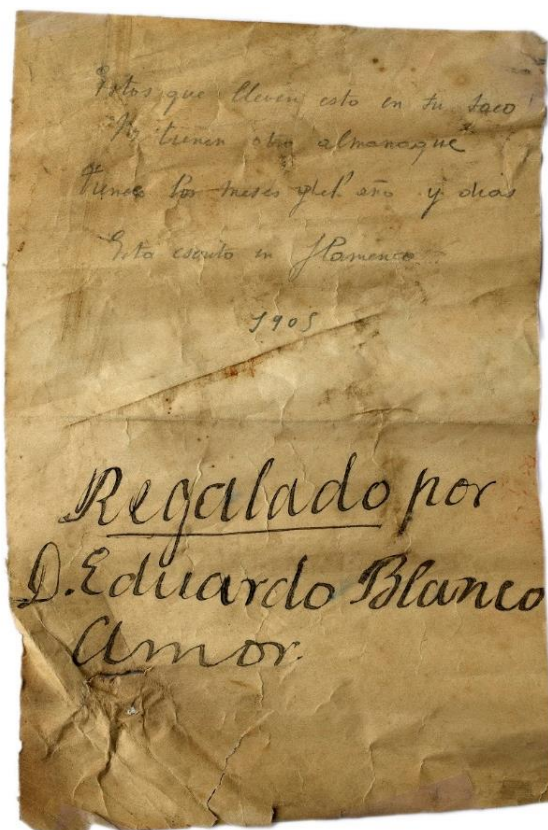 Estos que lleven esto en tu saco
No tienen otro almanaque
tienes los meses del año y dias
Esta escrito en flamenco
1905
Regalado por
D. Eduardo Blanco
Amor.